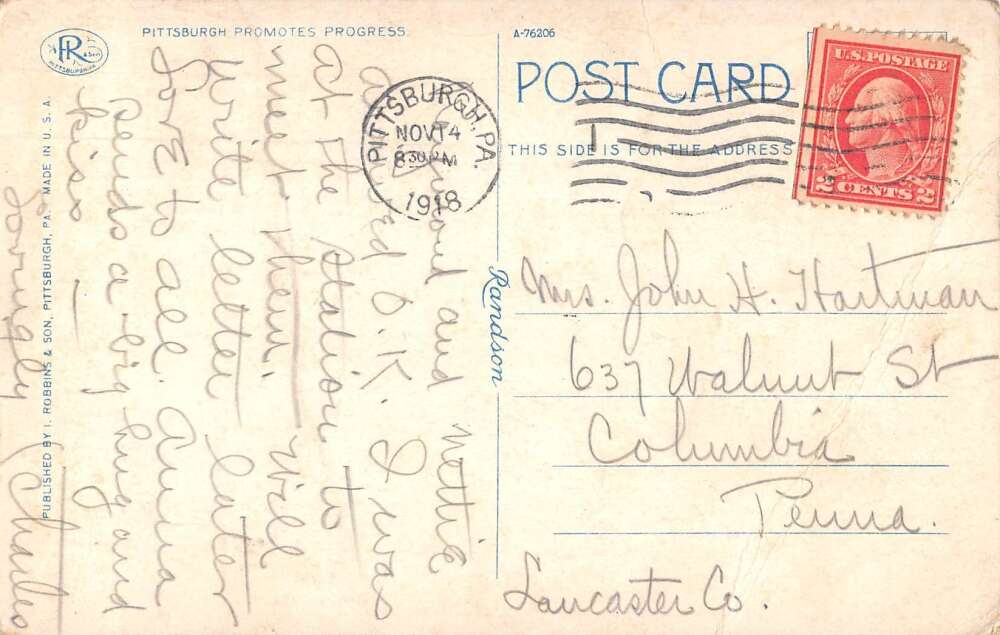 PITTSBURGH PROMOTES PROGRESS.
A-76206
R & Son
POST CARD
THIS SIDE IS FOR THE ADDRESS
U.S. POSTAGE
2 CENTS 2
PITTSBURGH, PA.
NOV 14
8 30 PM
1918
and Nettie
arrived O.K. I was
at the station to
meet them. Will
write letter later
Love to all. Anna
sends a big hug and
kiss —
Lovingly Charles
PUBLISHED BY I. ROBBINS & SON, PITTSBURGH, PA. MADE IN U.S.A.
Randson
Mrs. John H. Hartman
637 Walnut St
Columbia
Penna.
Lancaster Co.